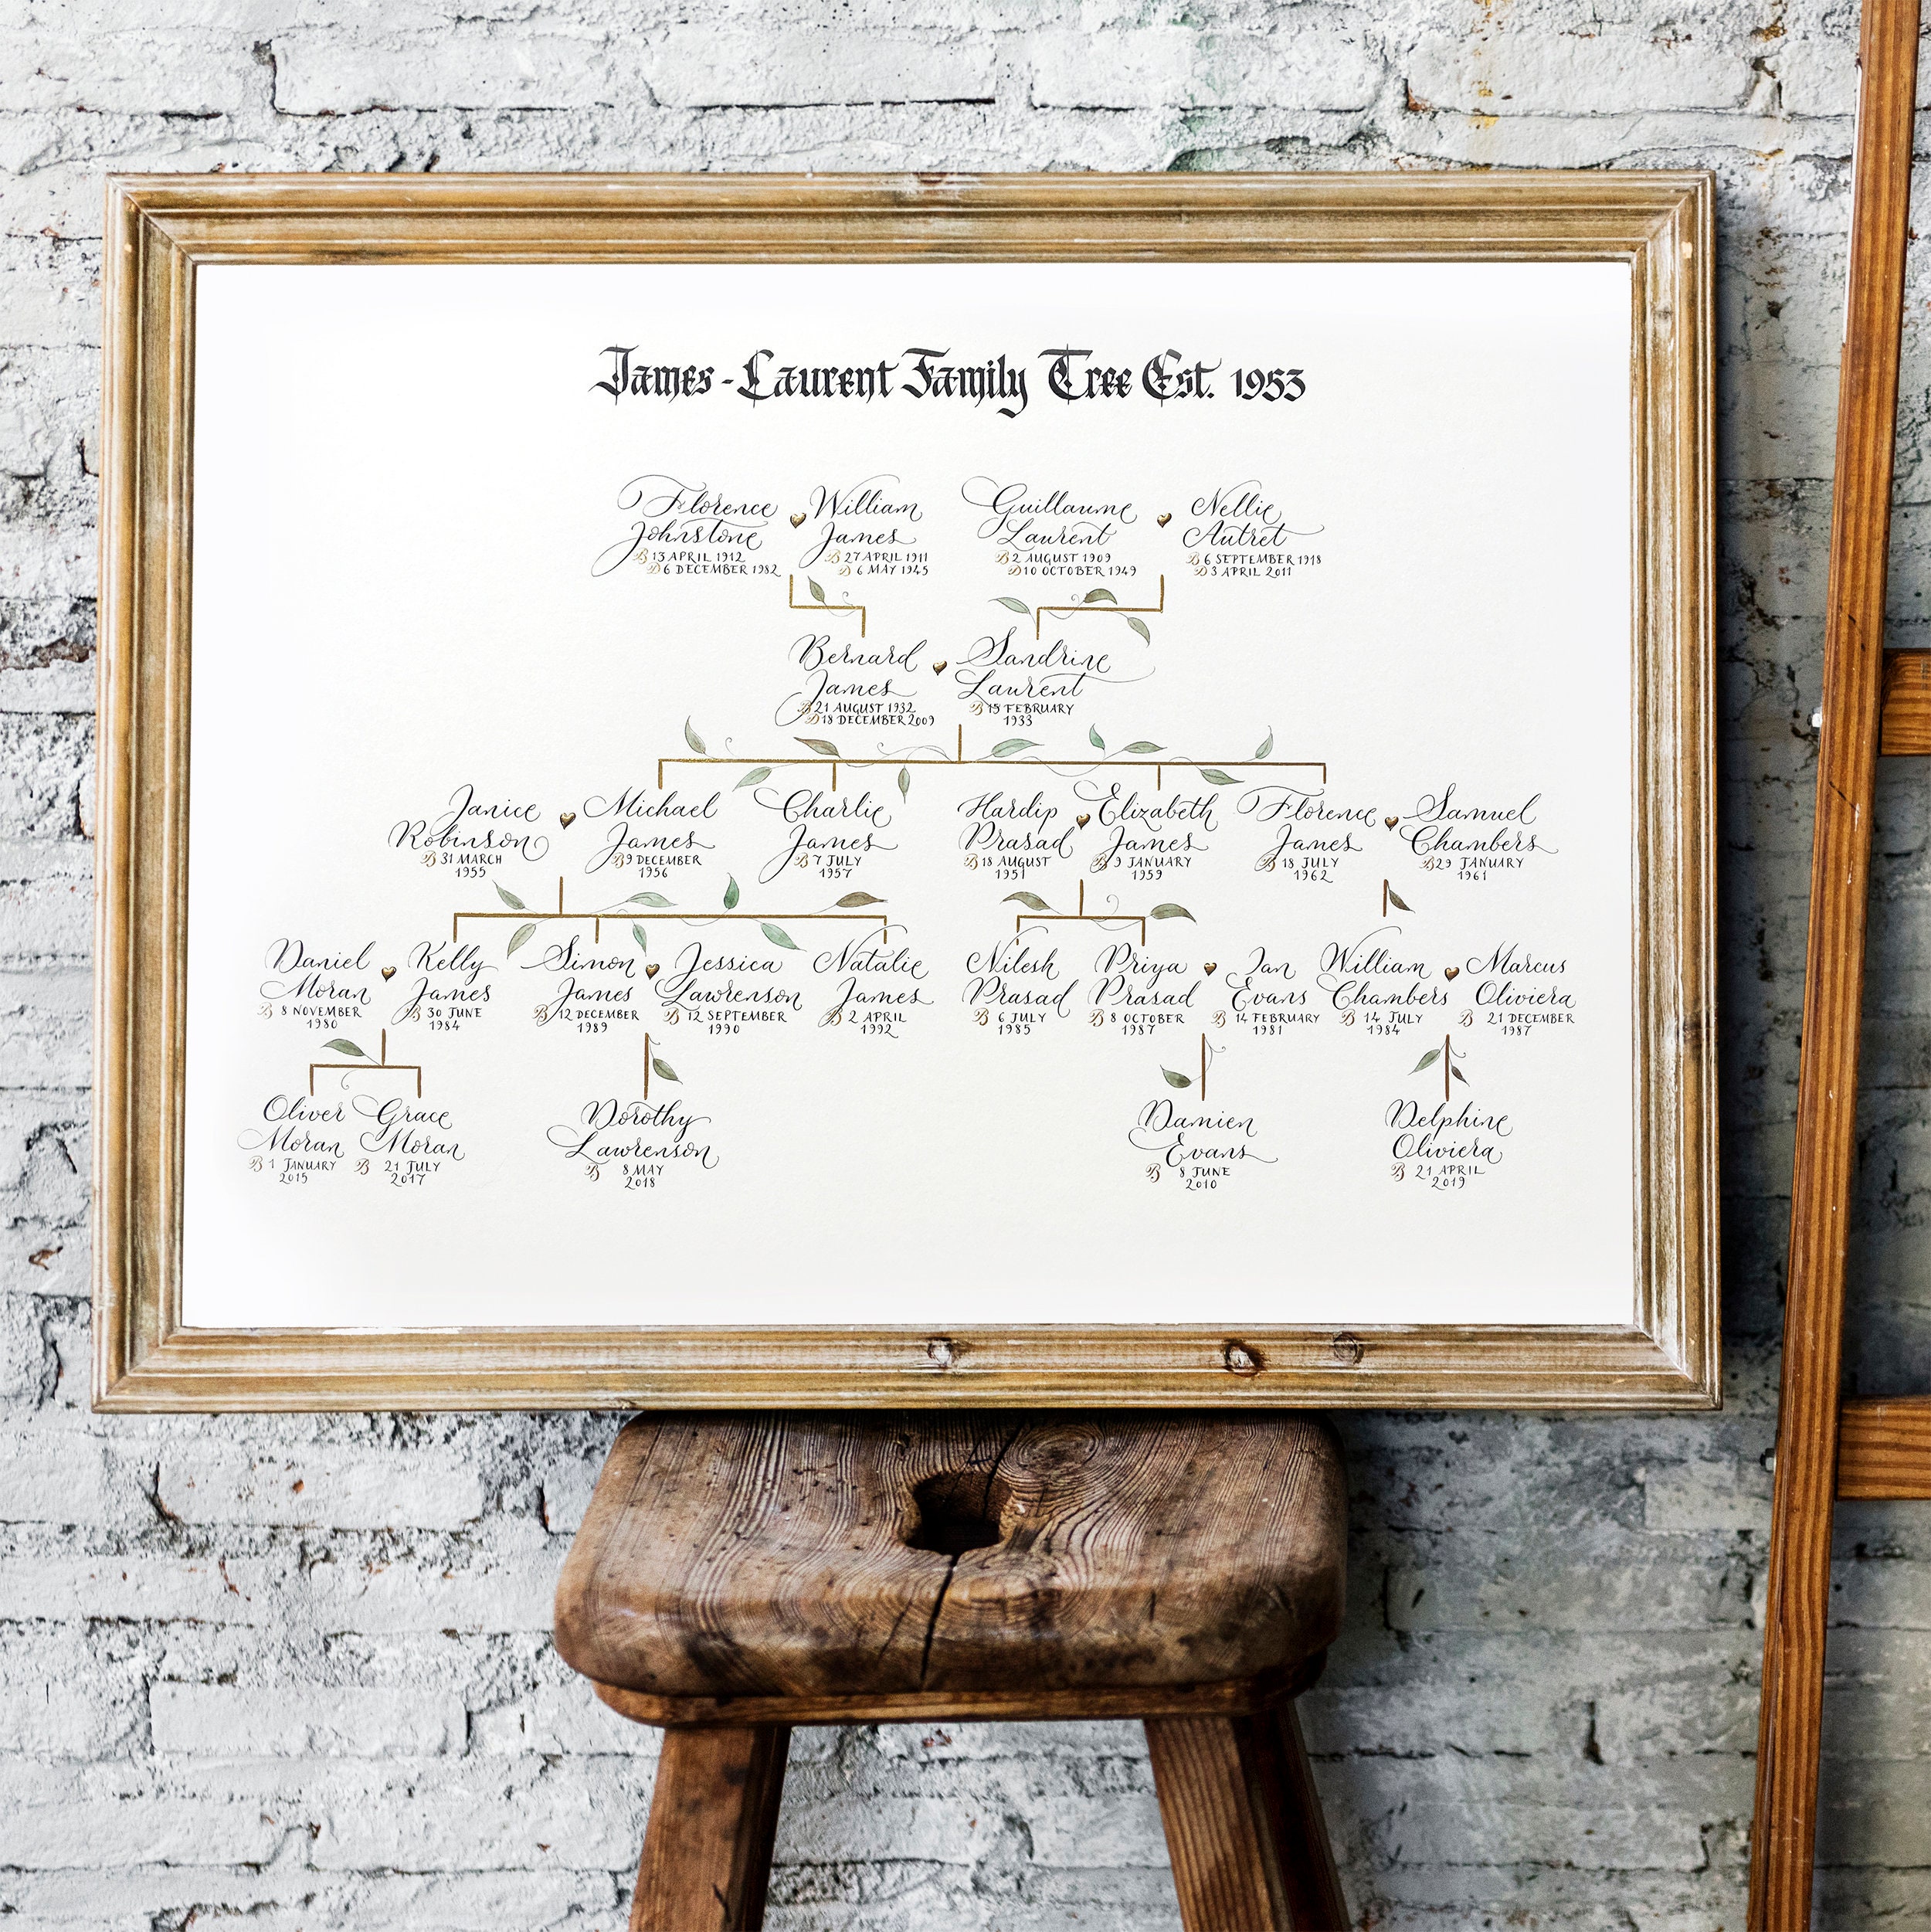 James-Laurent Family Tree Est. 1953
Florence
Johnstone
B 13 APRIL 1912
D 6 DECEMBER 1982
William
James
B 27 APRIL 1911
D 6 MAY 1945
Guillaume
Laurent
B 2 AUGUST 1909
D 10 OCTOBER 1949
Nellie
Autret
B 6 SEPTEMBER 1918
D 3 APRIL 2011
Bernard
James
B 21 AUGUST 1932
D 18 DECEMBER 2009
Sandrine
Laurent
B 15 FEBRUARY
1933
Janice
Robinson
B 31 MARCH
1955
Michael
James
B 9 DECEMBER
1956
Charlie
James
B 7 JULY
1957
Hardip
Prasad
B 18 AUGUST
1951
Elizabeth
James
B 9 JANUARY
1959
Florence
James
B 18 JULY
1962
Samuel
Chambers
B 29 JANUARY
1961
Daniel
Moran
B 8 NOVEMBER
1980
Kelly
James
B 30 JUNE
1984
Simon
James
B 12 DECEMBER
1989
Jessica
Lawrenson
B 12 SEPTEMBER
1990
Natalie
James
B 2 APRIL
1992
Nilesh
Prasad
B 6 JULY
1985
Priya
Prasad
B 8 OCTOBER
1987
Ian
Evans
B 14 FEBRUARY
1981
William
Chambers
B 14 JULY
1984
Marcus
Oliviera
B 21 DECEMBER
1987
Oliver
Moran
B 1 JANUARY
2015
Grace
Moran
B 21 JULY
2017
Dorothy
Lawrenson
B 8 MAY
2018
Damien
Evans
B 8 JUNE
2010
Delphine
Oliviera
B 21 APRIL
2019